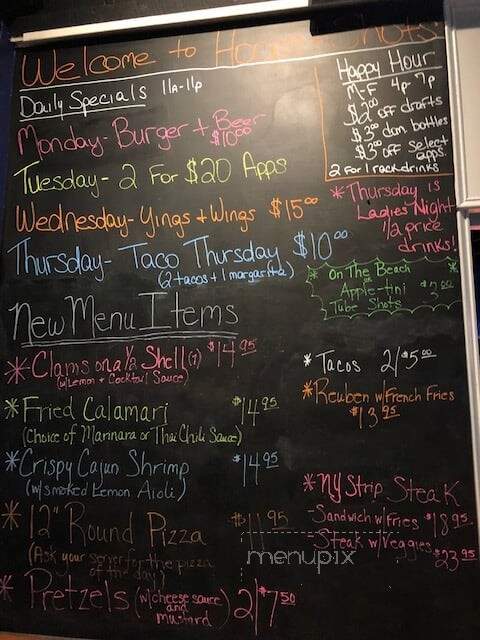 Welcome to
Daily Specials 11A-11p
Monday- Burger + Beer
$10⁰⁰
Tuesday- 2 For $20 Apps
Wednesday- Yings + Wings $15⁰⁰
Thursday- Taco Thursday $10⁰⁰
(2 tacos + 1 margarita)
Happy Hour
M-F 4p-7p
$2⁰⁰ off drafts
$3⁰⁰ dom bottles
$3⁰⁰ off select
apps.
2 for 1 rack drinks
*Thursday is
Ladies Night
1/2 price
drinks!
* On The Beach *
Apple-tini
Tube Shots $3⁰⁰
New Menu Items
*Clams on a 1/2 Shell (7) $14⁹⁵
(w/Lemon + Cocktail Sauce)
*Fried Calamari $14⁹⁵
(Choice of Marinara or Thai Chili Sauce)
*Crispy Cajun Shrimp $14⁹⁵
(w/smoked Lemon Aioli)
*12" Round Pizza $11⁹⁵
(Ask your server for the pizza
of the day!)
*Pretzels (w/cheese sauce 2/$7⁵⁰
and
mustard)
*Tacos 2/$5⁰⁰
*Reuben w/French Fries
$13⁹⁵
*NY Strip Steak
-Sandwich w/Fries $18⁹⁵
-Steak w/Veggies $23⁹⁵
menupix